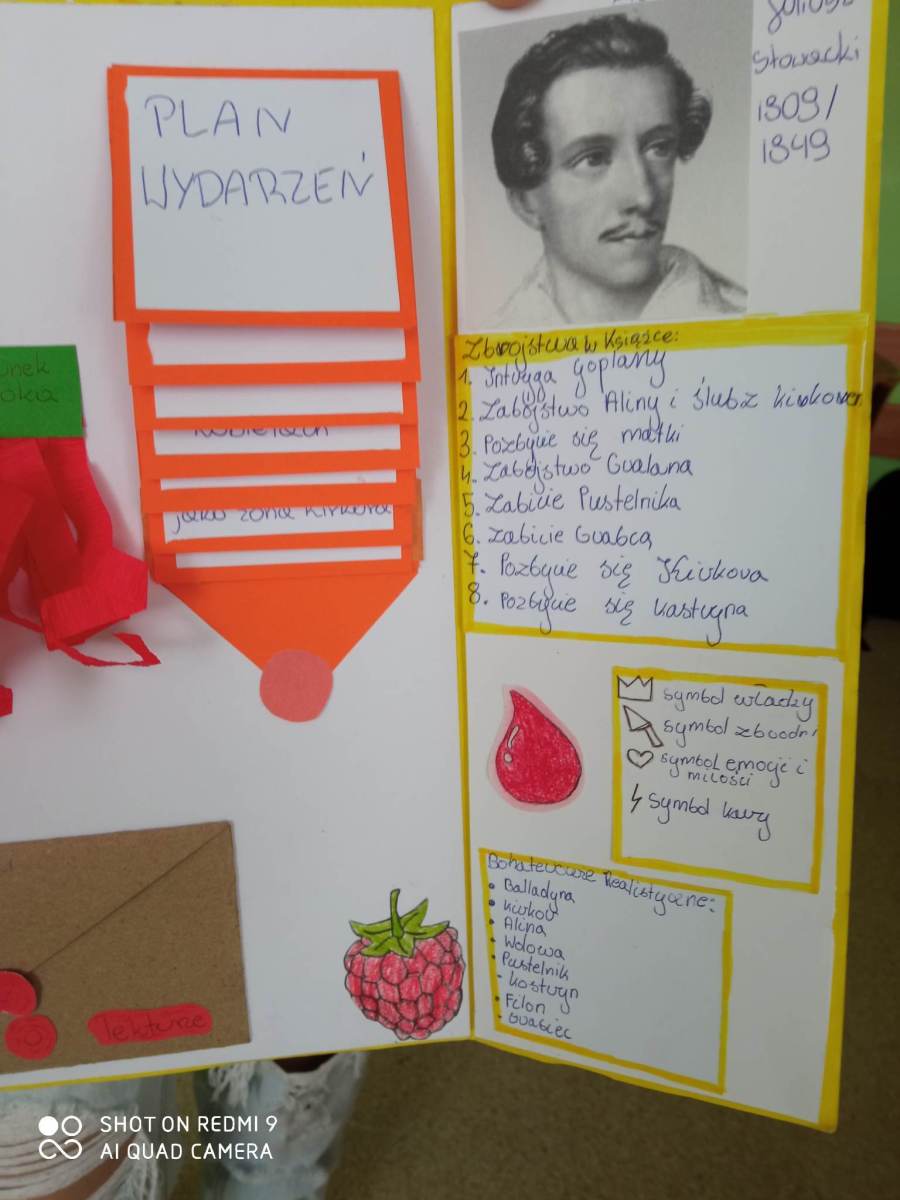 PLAN
WYDARZEŃ
unek
kobietach
jako żona Kirkora
lekturze
Juliusz
Słowacki
1809/
1849
Zbrojstwa w Książce:
1. Intryga Goplany
2. Zabójstwo Aliny i ślub z kirkorem
3. Pozbycie się matki
4. Zabójstwo Gralana
5. Zabicie Pustelnika
6. Zabicie Grabca
7. Pozbycie się Kirkora
8. Pozbycie się Kostryna
symbol władzy
symbol zbrodni
symbol emocji i
miłości
symbol kary
Bohaterowie Realistyczne:
• Balladyna
• Kirkor
• Alina
• Wdowa
• Pustelnik
- Kostryn
• Filon
- Grabiec
SHOT ON REDMI 9
AI QUAD CAMERA